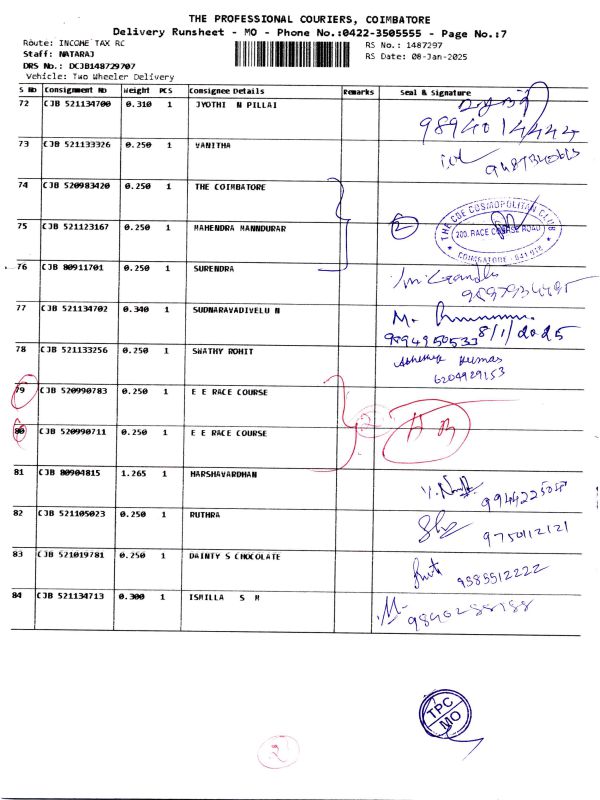 THE PROFESSIONAL COURIERS, COIMBATORE
Delivery Runsheet - MO - Phone No.:0422-3505555 - Page No.:7
Route: INCOME TAX RC
RS No.: 1487297
Staff: NATARAJ
RS Date: 08-Jan-2025
DRS No.: DCJB148729707
Vehicle: Two Wheeler Delivery
S No Consignment No Weight PCS Consignee Details Remarks Seal & Signature
72 CJB 521134700 0.310 1 JYOTHI N PILLAI
9894014444
73 CJB 521133326 0.250 1 VANITHA
74 CJB 520983420 0.250 1 THE COIMBATORE
75 CJB 521123167 0.250 1 MAHENDRA MANNDURAR
2
THE COE COSMOPOLITAN CLUB
200, RACE COURSE ROAD
COIMBATORE - 641 018
76 CJB 80911701 0.250 1 SURENDRA
77 CJB 521134702 0.340 1 SUDNARAVADIVELU N
M.
9894950533 8/1/2025
78 CJB 521133256 0.250 1 SWATHY ROHIT
Kumar
6204929153
79 CJB 520990783 0.250 1 E E RACE COURSE
80 CJB 520990711 0.250 1 E E RACE COURSE
2
81 CJB 80904815 1.265 1 HARSHAVARDHAN
82 CJB 521105023 0.250 1 RUTHRA
9750112121
83 CJB 521019781 0.250 1 DAINTY S CHOCOLATE
9385512222
84 CJB 521134713 0.300 1 ISMILLA S M
M-
9840288188
TPC
MO
2